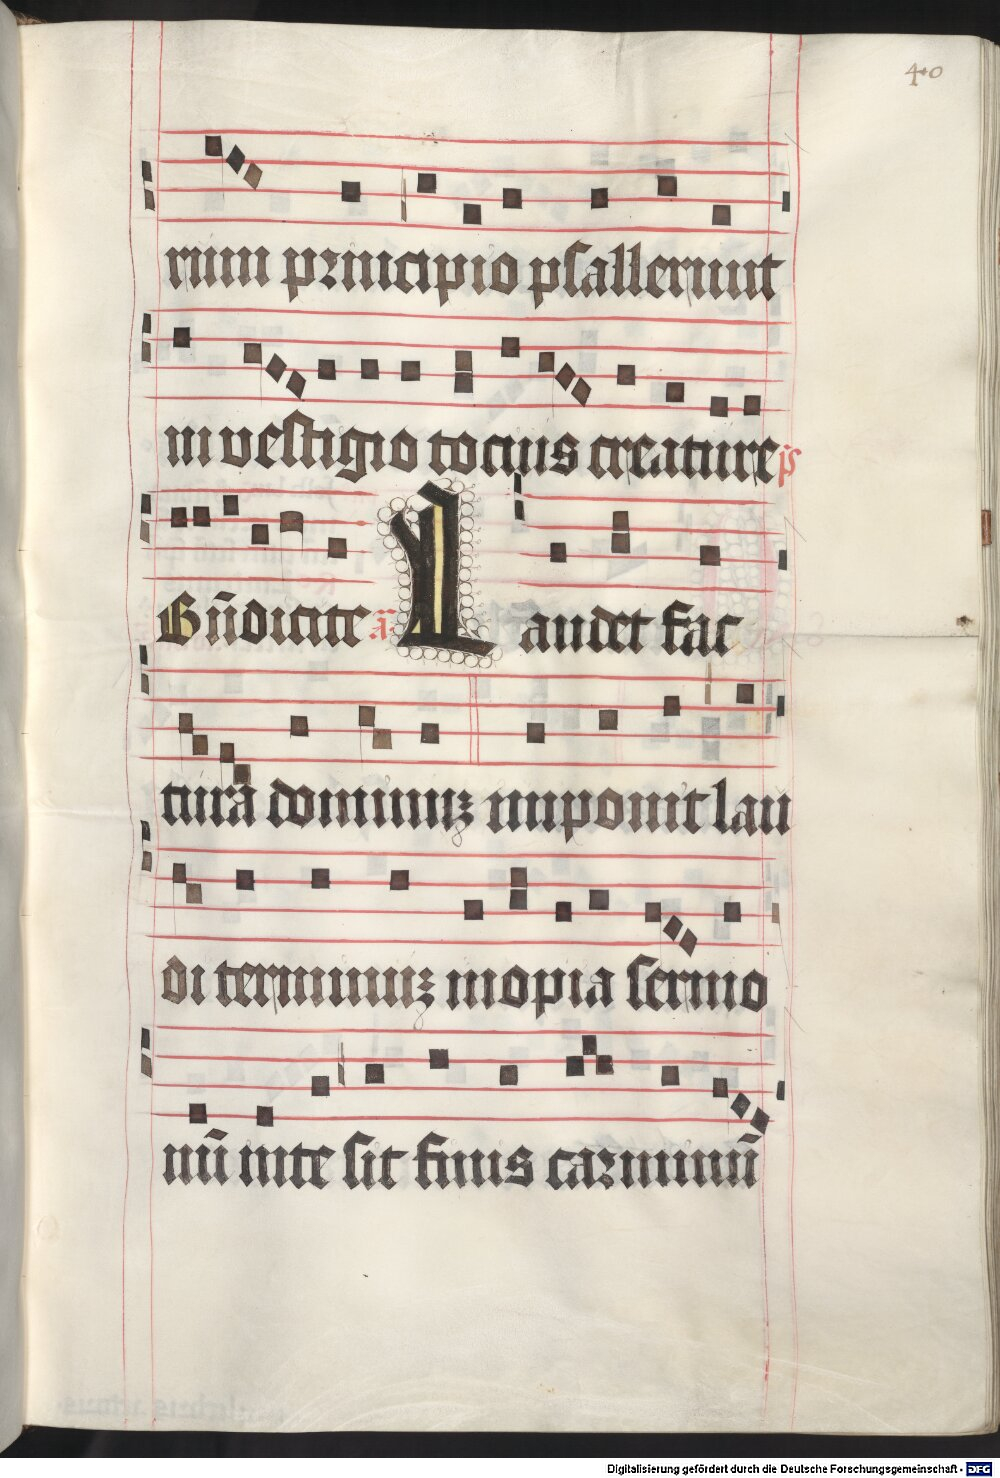 40
rum principio psallerunt
in vestigio tocius creature p̄s
Bn̄dicite a᷑ Laudet fac
tura dominuʒ imponit lau
di terminuʒ inopia sermo
nū in te sit finis carminū
Digitalisierung gefördert durch die Deutsche Forschungsgemeinschaft - DFG